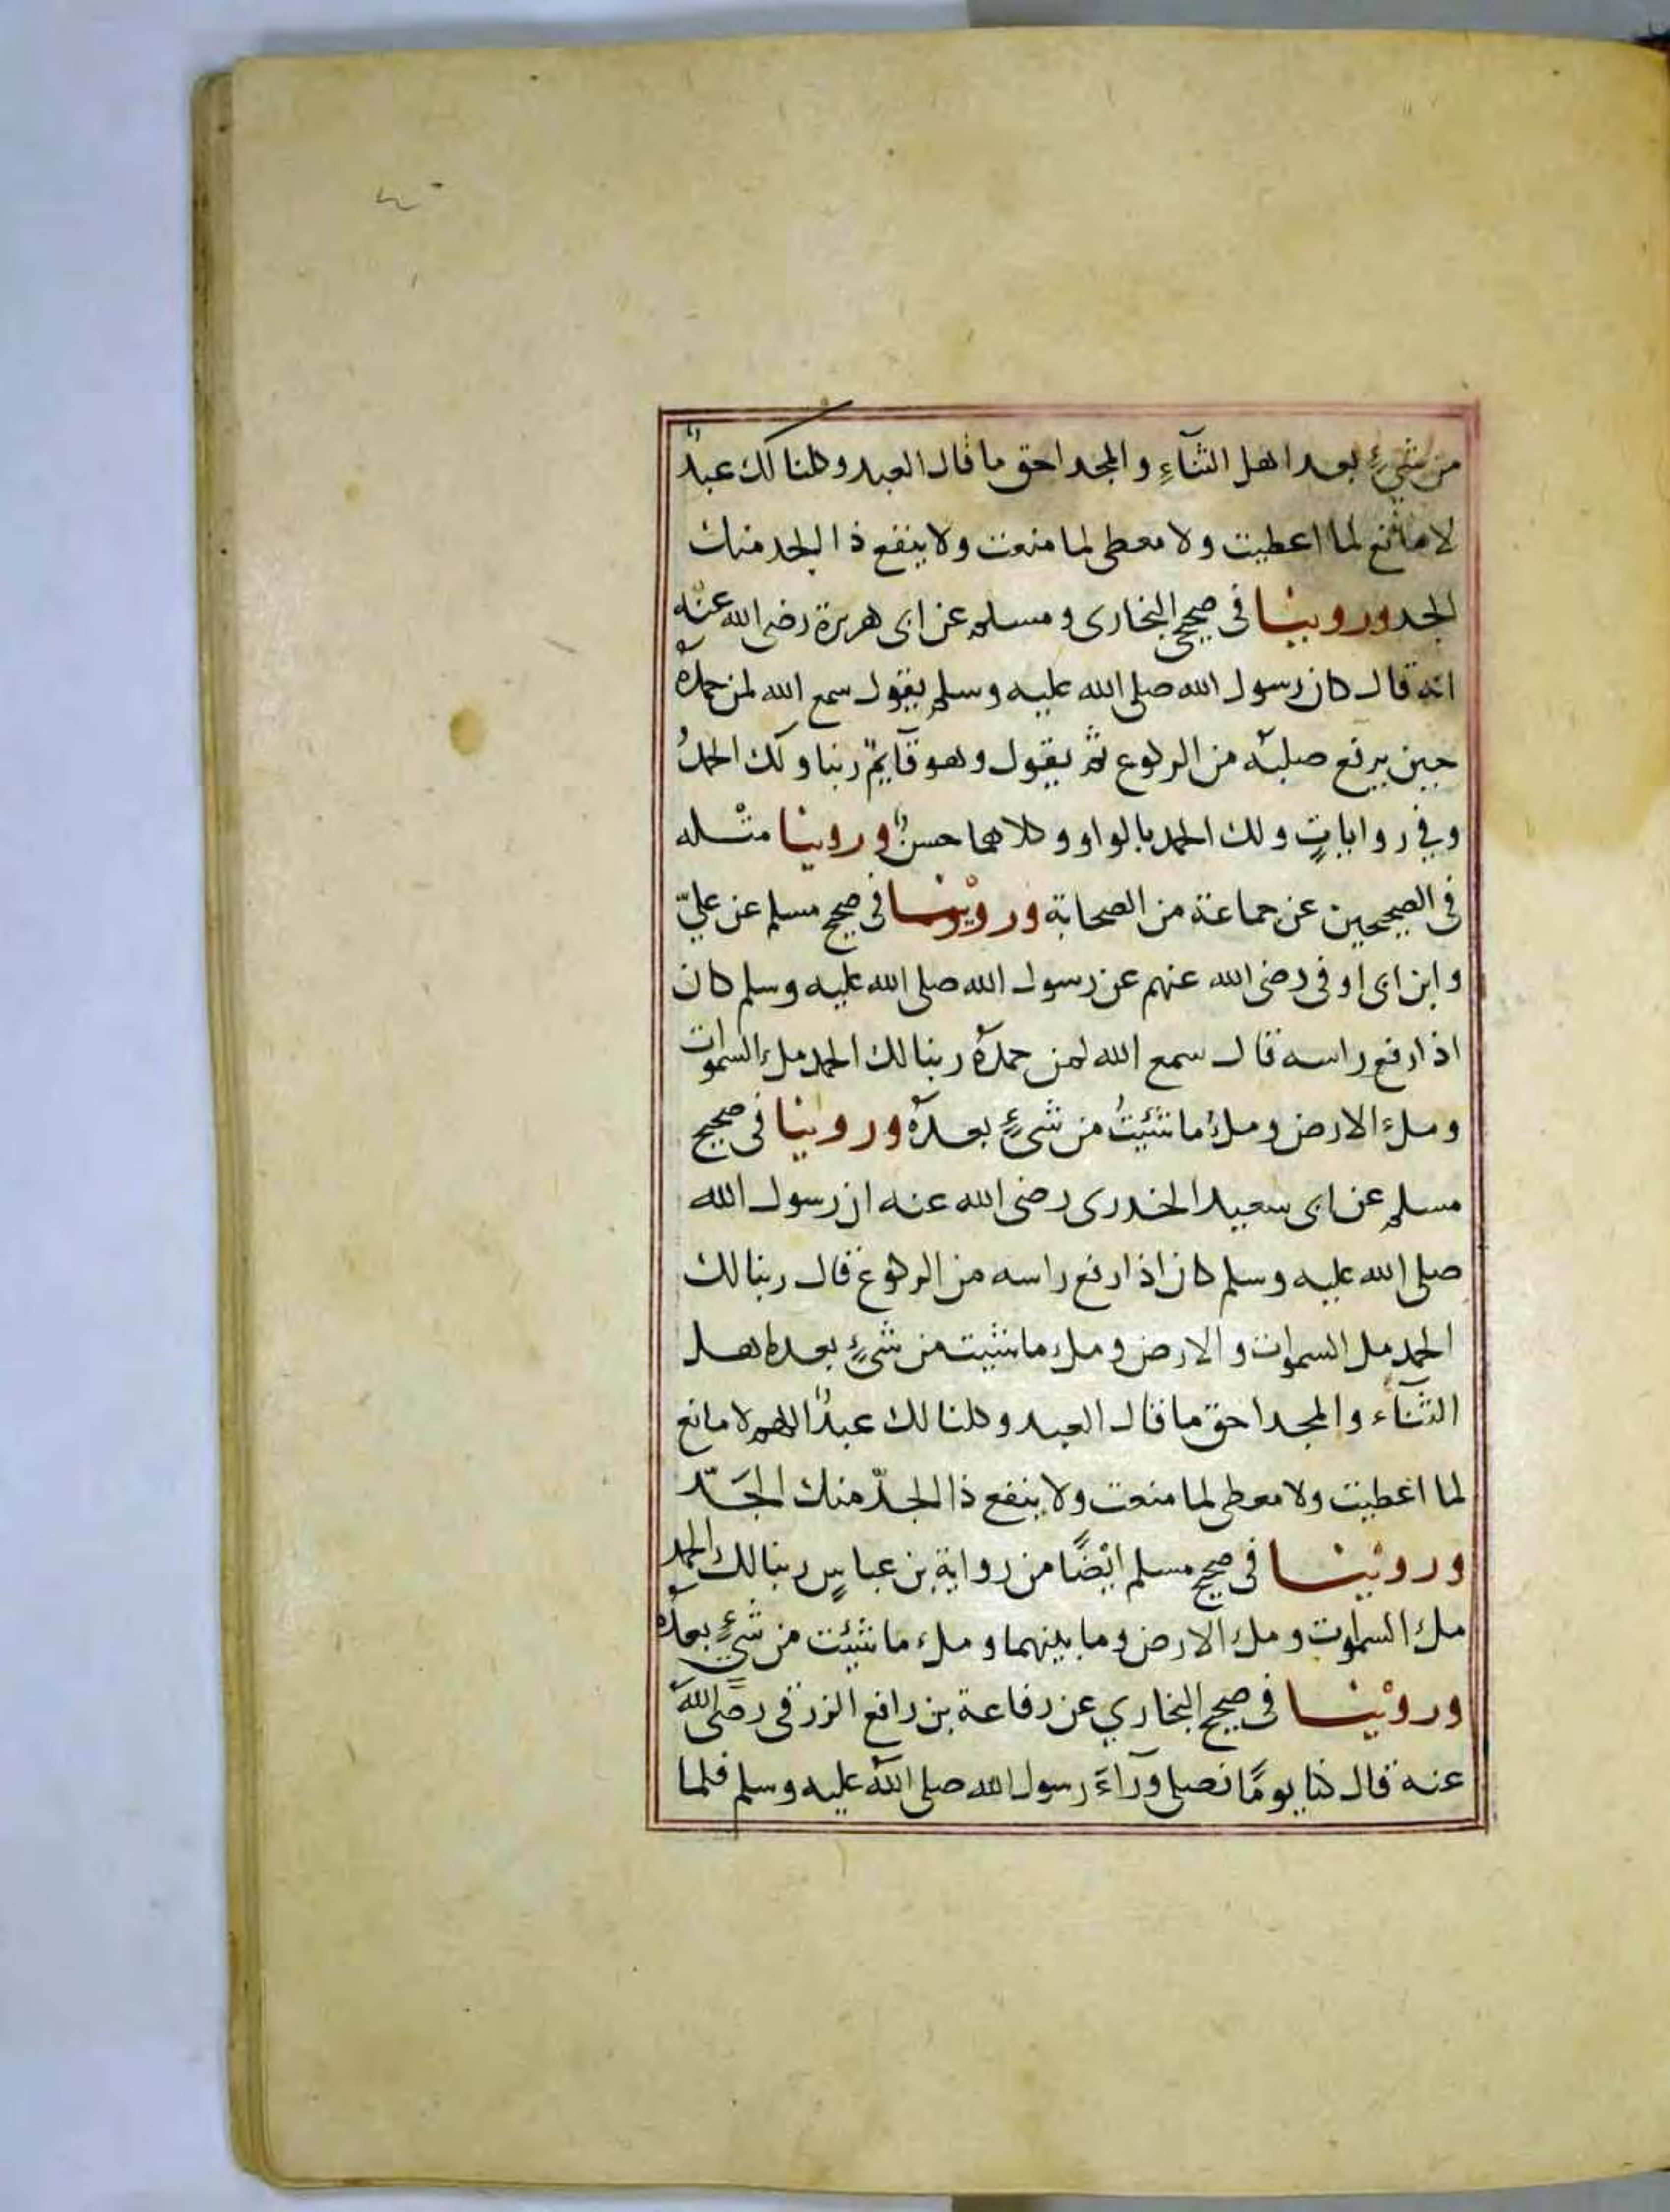 من شيءٍ بعد اهل الثنآءِ والمجد احق ما قال العبد وكلنا لك عبدٌ
لا مانع لما اعطيت ولا معطى لما منعت ولا ينفع ذا الجد منك
الجد وروينا فى صحيح البخارى ومسلم عن ابى هريرة رضى الله عنه
انه قال كان رسول الله صلى الله عليه وسلم يقول سمع الله لمن حمدهُ
حين يرفع صلبه من الركوع ثم يقول وهو قآيمٌ ربنا ولك الحمدُ
وفي رواياتٍ ولك الحمد بالواو وكلاهما حسنٌ وروينا مثله
فى الصحيحين عن جماعة من الصحابة وروينا فى صحيح مسلم عن عليّ
وابن ابى اوفى رضى الله عنهم عن رسول الله صلى الله عليه وسلم كان
اذا رفع راسه قال سمع الله لمن حمدهُ ربنا لك الحمد ملء السموات
وملءَ الارض وملءُ ما شئيتُ من شىءٍ بعدهُ وروينا فى صحيح
مسلم عن ابى سعيد الخدرى رضى الله عنه ان رسول الله
صلى الله عليه وسلم كان اذا رفع راسه من الركوع قال ربنا لك
الحمد مل السموات والارض وملء ما شئيت من شىءٍ بعد اهل
الثنآء والمجد احق ما قال العبد وكلنا لك عبدٌ اللهم لا مانع
لما اعطيت ولا معطى لما منعت ولا ينفع ذا الجدّ منك الجَدّ
وروْينا فى صحيح مسلم ايْضًا من رواية بن عباسٍ ربنا لك الحمد
ملءُ السموات وملءُ الارض وما بينهما وملء ما شئيت من شيءٍ بعدهُ
وروْينا فى صحيح البخاري عن رفاعة بن رافع الزرقى رضى الله
عنه قال كنا يومًا نصلى ورآءَ رسول الله صلى الله عليه وسلم فلما